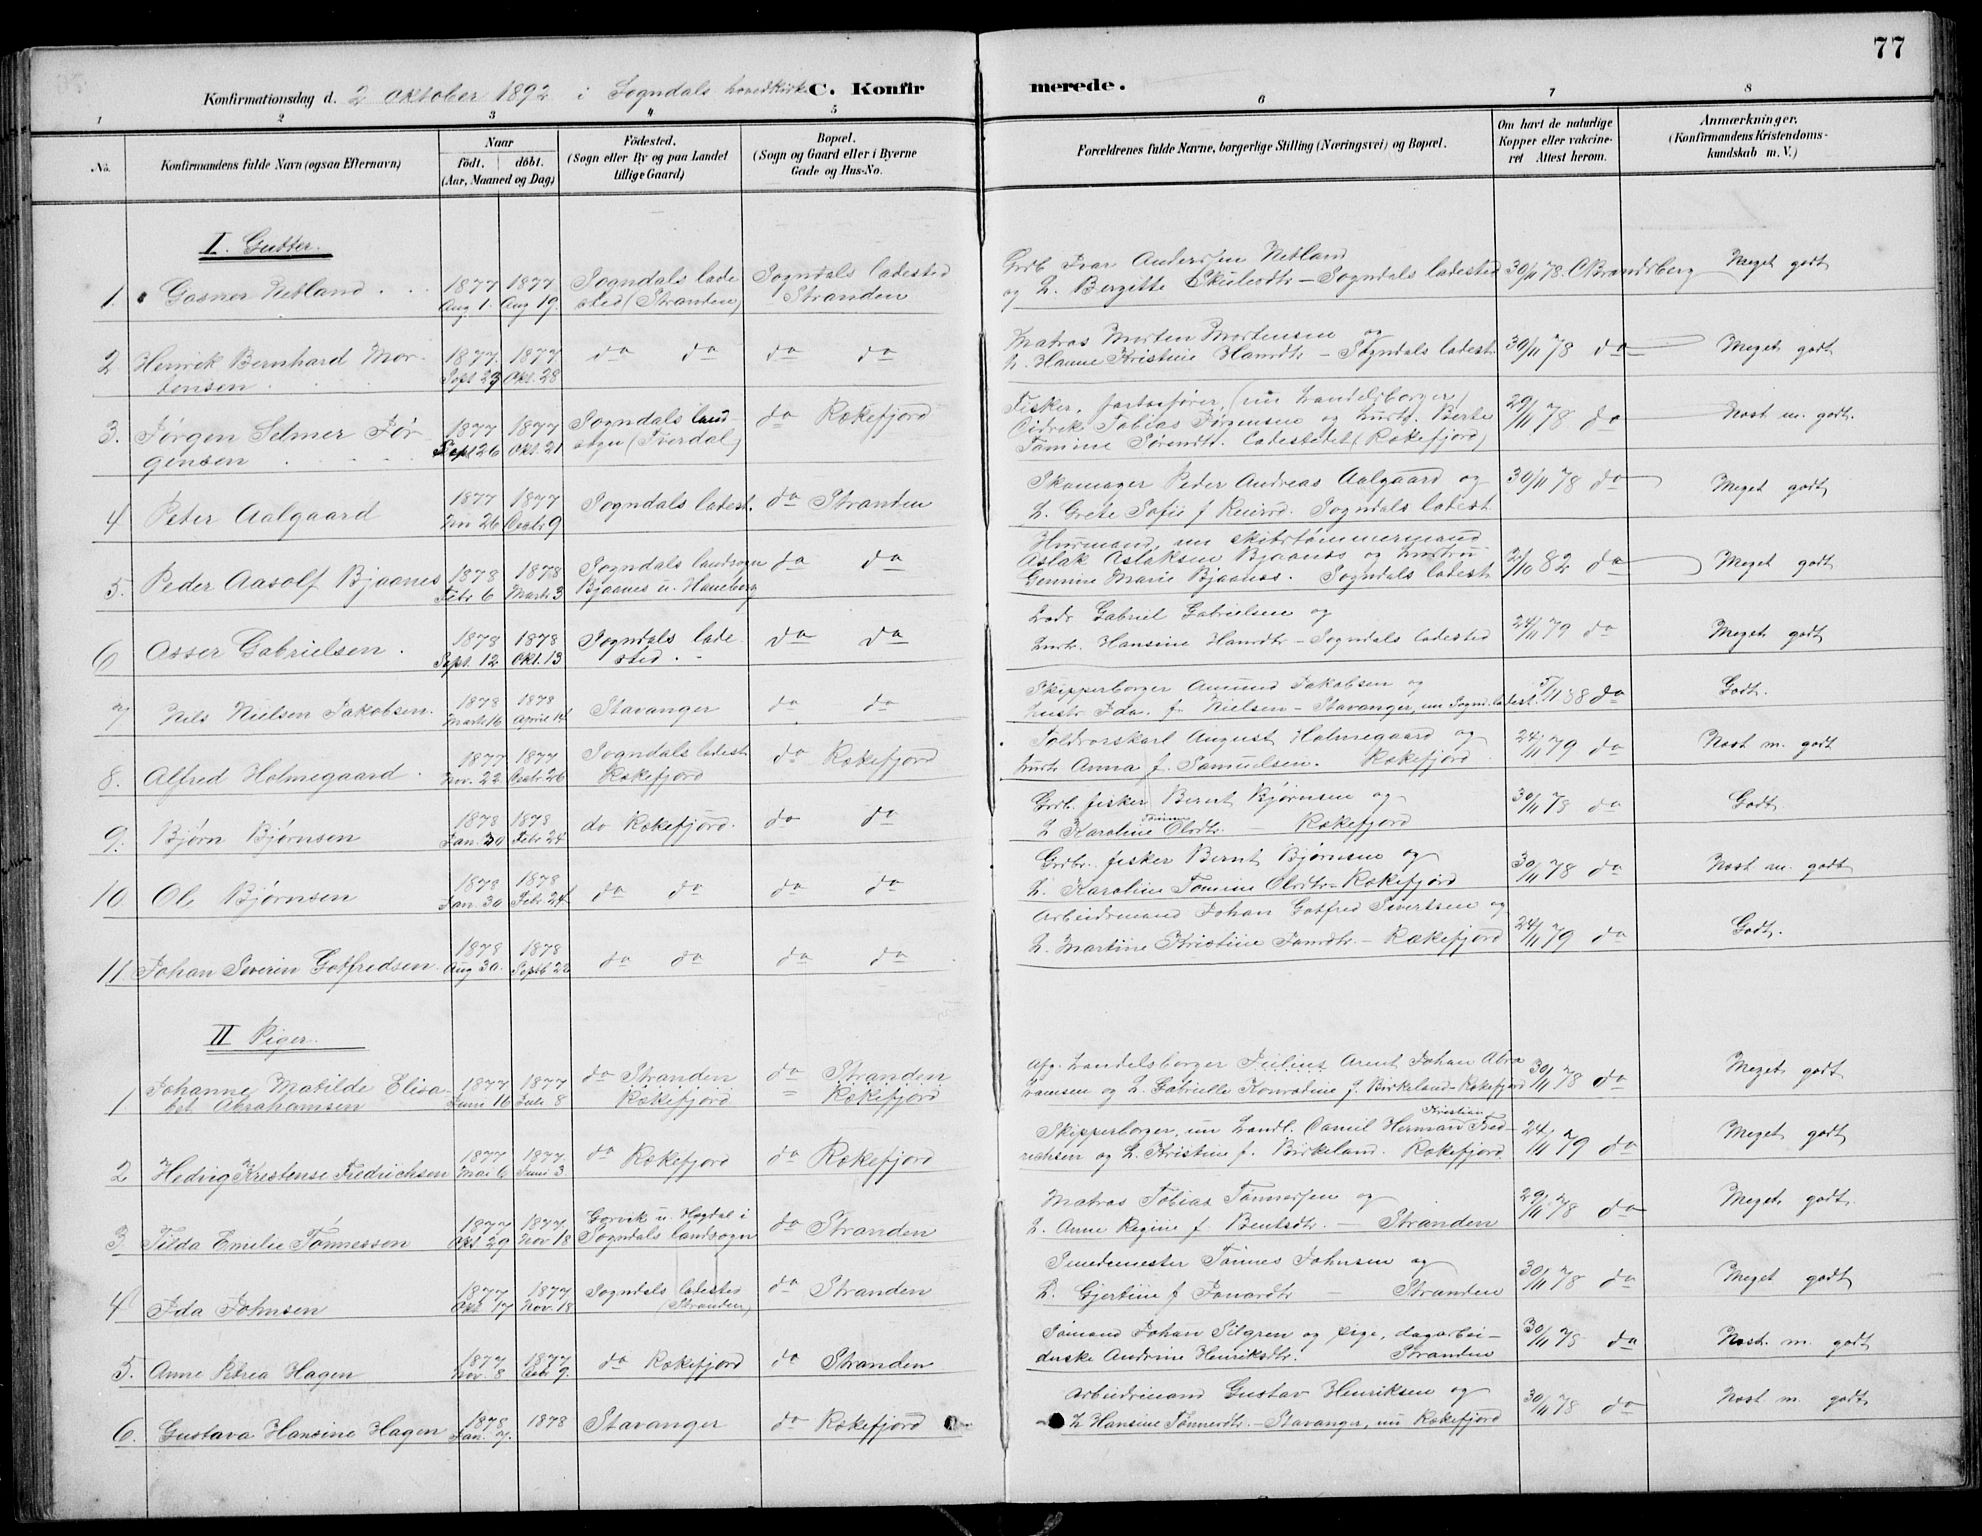 77
Konfirmationsdag d. 2 Oktober 1892 i Sogndals hovedkirke C. Konfirmerede.
1 2 3 4 5 6 7 8
No.
Konfirmandens fulde Navn (ogsaa Efternavn)
Naar
født. døbt.
(Aar, Maaned og Dag)
Fødested.
(Sogn eller By og paa Landet
tillige Gaard)
Bopæl.
(Sogn og Gaard eller i Byerne
Gade og Hus-No.
Forældrenes fulde Navne, borgerlige Stilling (Næringsvei) og Bopæl.
Om havt de naturlige
Kopper eller vakcine-
ret Attest herom.
Anmærkninger,
(Konfirmandens Kristendoms-
kundskab m. V.)
I. Gutter.
1. Gasner Netland 1877 Aug 1. 1877 Aug 19. Sogndals lade-
sted (Stranden) Sogndals ladested
Stranden
Grdb Ivar Andersen Netland
og H. Bergitte Skulesdtr – Sogndals ladested 30/11 78. C Brandsberg Meget godt
2 Henrik Bernhard Mor-
tensen 1877. Sept 23 1877. Okt. 28 do do do do
Matros Morten Mortensen og
H. Hanne Kristine Hansdtr – Sogndals ladest. 30/11 78 do Meget godt
3. Jørgen Selmer Jør-
gensen 1877 Sept 26 1877 Okt. 21 Sogndals land-
sogn (Tverdal) do Rækefjord
Fisker, fartøifører, (nu Handelsborger)
Didrik Tobias Jørgensen og Hustr. Berte
Tomine Sørensdt. Ladestedet (Rækefjord) 29/11 78 do Næst m. godt.
4 Peter Aalgaard 1877 Nov 26 1877 Decbr 9 Sogndals ladest. do Stranden
Skomager Peder Andreas Aalgaard og
H. Grete Sofie f. Sogndals ladest 30/11 78 do Meget godt
5. Peder Aasolf Bjaanes 1878 Febr 6 1878 Marts 3 Sogndals landsogn
Bjaanes u. Haneberg do do
Husmand, nu skibstømmermand
Aslak Aslaksen Bjaanes og hustru
Gemine Marie Bjaanes. Sogndals ladest. /10 82 do Meget godt
6 Asser Gabrielsen. 1878 Sept. 12 1878 Okt. 13 Sogndals lade-
sted. do do
Gabriel Gabrielsen og
hustr. Hansine Hansdtr – Sogndals ladested 24/11 79 do Meget godt
7 Nils Nielsen Jakobsen. 1878 Marts 16 1878 April 14 Stavanger do do
Skipperborger Amund Jakobsen og
hustr. Ida f. Nielsen – Stavanger, nu Sognd. ladest. 5/11 88 do Godt.
8. Alfred Holmegaard. 1877 Nov. 22 1877 Decbr 26 Sogndals ladest.
Rækefjord do Rækefjord
Toldrorskarl August Holmegaard og
hustr Anna f. Samuelsen. Rækefjord 24/11 79 do Næst m. godt
9. Bjørn Bjørnsen 1878 Jan. 30 1878 Febr 24 do Rækefjord. do do
Grdb. fisker Bernt Bjørnsen og
H Karoline Tomine Olsdtr. – Rækefjord 30/11 78 do Godt
10. Ole Bjørnsen 1878 Jan. 30 1878 Febr 24 do do do do
Grdbr. fisker Bernt Bjørnsen og
H. Karoline Tomine Olsdtr – Rækefjord 30/11 78 do Næst m. godt
11. Johan Severin Gotfredsen. 1878 Aug 30. 1878 Septb 22 do do do do
Arbeidsmand Johan Gotfred Sivertsen og
H. Martine Kristine – Rækefjord 24/11 79 do Godt.
II Piger.
1 Johanne Matilde Elisa-
bet Abrahamsen 1877 Juni 16 1877 Juli 8 do Stranden
Rækefjord do Stranden
Rækefjord
Afg. Handelsborger Julius Arnt Johan Abra-
hamsen og H. Gabrielle Konradine f. Birkeland – Rækefjord 30/11 78 do Meget godt
2 Hedvig Kristense Fredrichsen 1877 Mai 6 1877. Juni 3 do Rækefjord do Rækefjord
Skipperborger, nu Handl. Daniel Herman Kristian Fred-
richsen og H. Kristine f. Birkeland. Rækefjord. 24/11 79 do Meget godt
3 Tilda Emilie Tønnessen 1877 Okt 29 1877 Nov 18 Gorvik u. Høgdal i
Sogndals landsogn do Stranden
Matros Tobias Tønnesen og
H. Anne Regine f. Bentsdtr. – Stranden 29/11 78 do Meget godt.
4 Ida Johnsen 1877 Okt 17 1877 Nov. 18 Sogndals ladested
(Stranden) do Stranden
Smedemester Tønnes Johnsen og
H. Gjertine f. – Stranden 30/11 78 do Meget godt
5. Anne Petrea Hagen 1877 Nov. 8 1877 Decbr 9. do Rækefjord do Stranden
Sømand Johan Silgren og pige, dagarbei-
derske Andrine Henriksdtr. Stranden 30/11 78 do Næst. m. godt
6. Gustava Hansine Hagen 1878 Jan. 7. 1878 Stavanger do Rækefjord
Arbeidsmand Gustav Henriksen og
H Hansine Tønnesdtr. – Stavanger, nu Rækefjord 30/11 78 do Næst m. godt